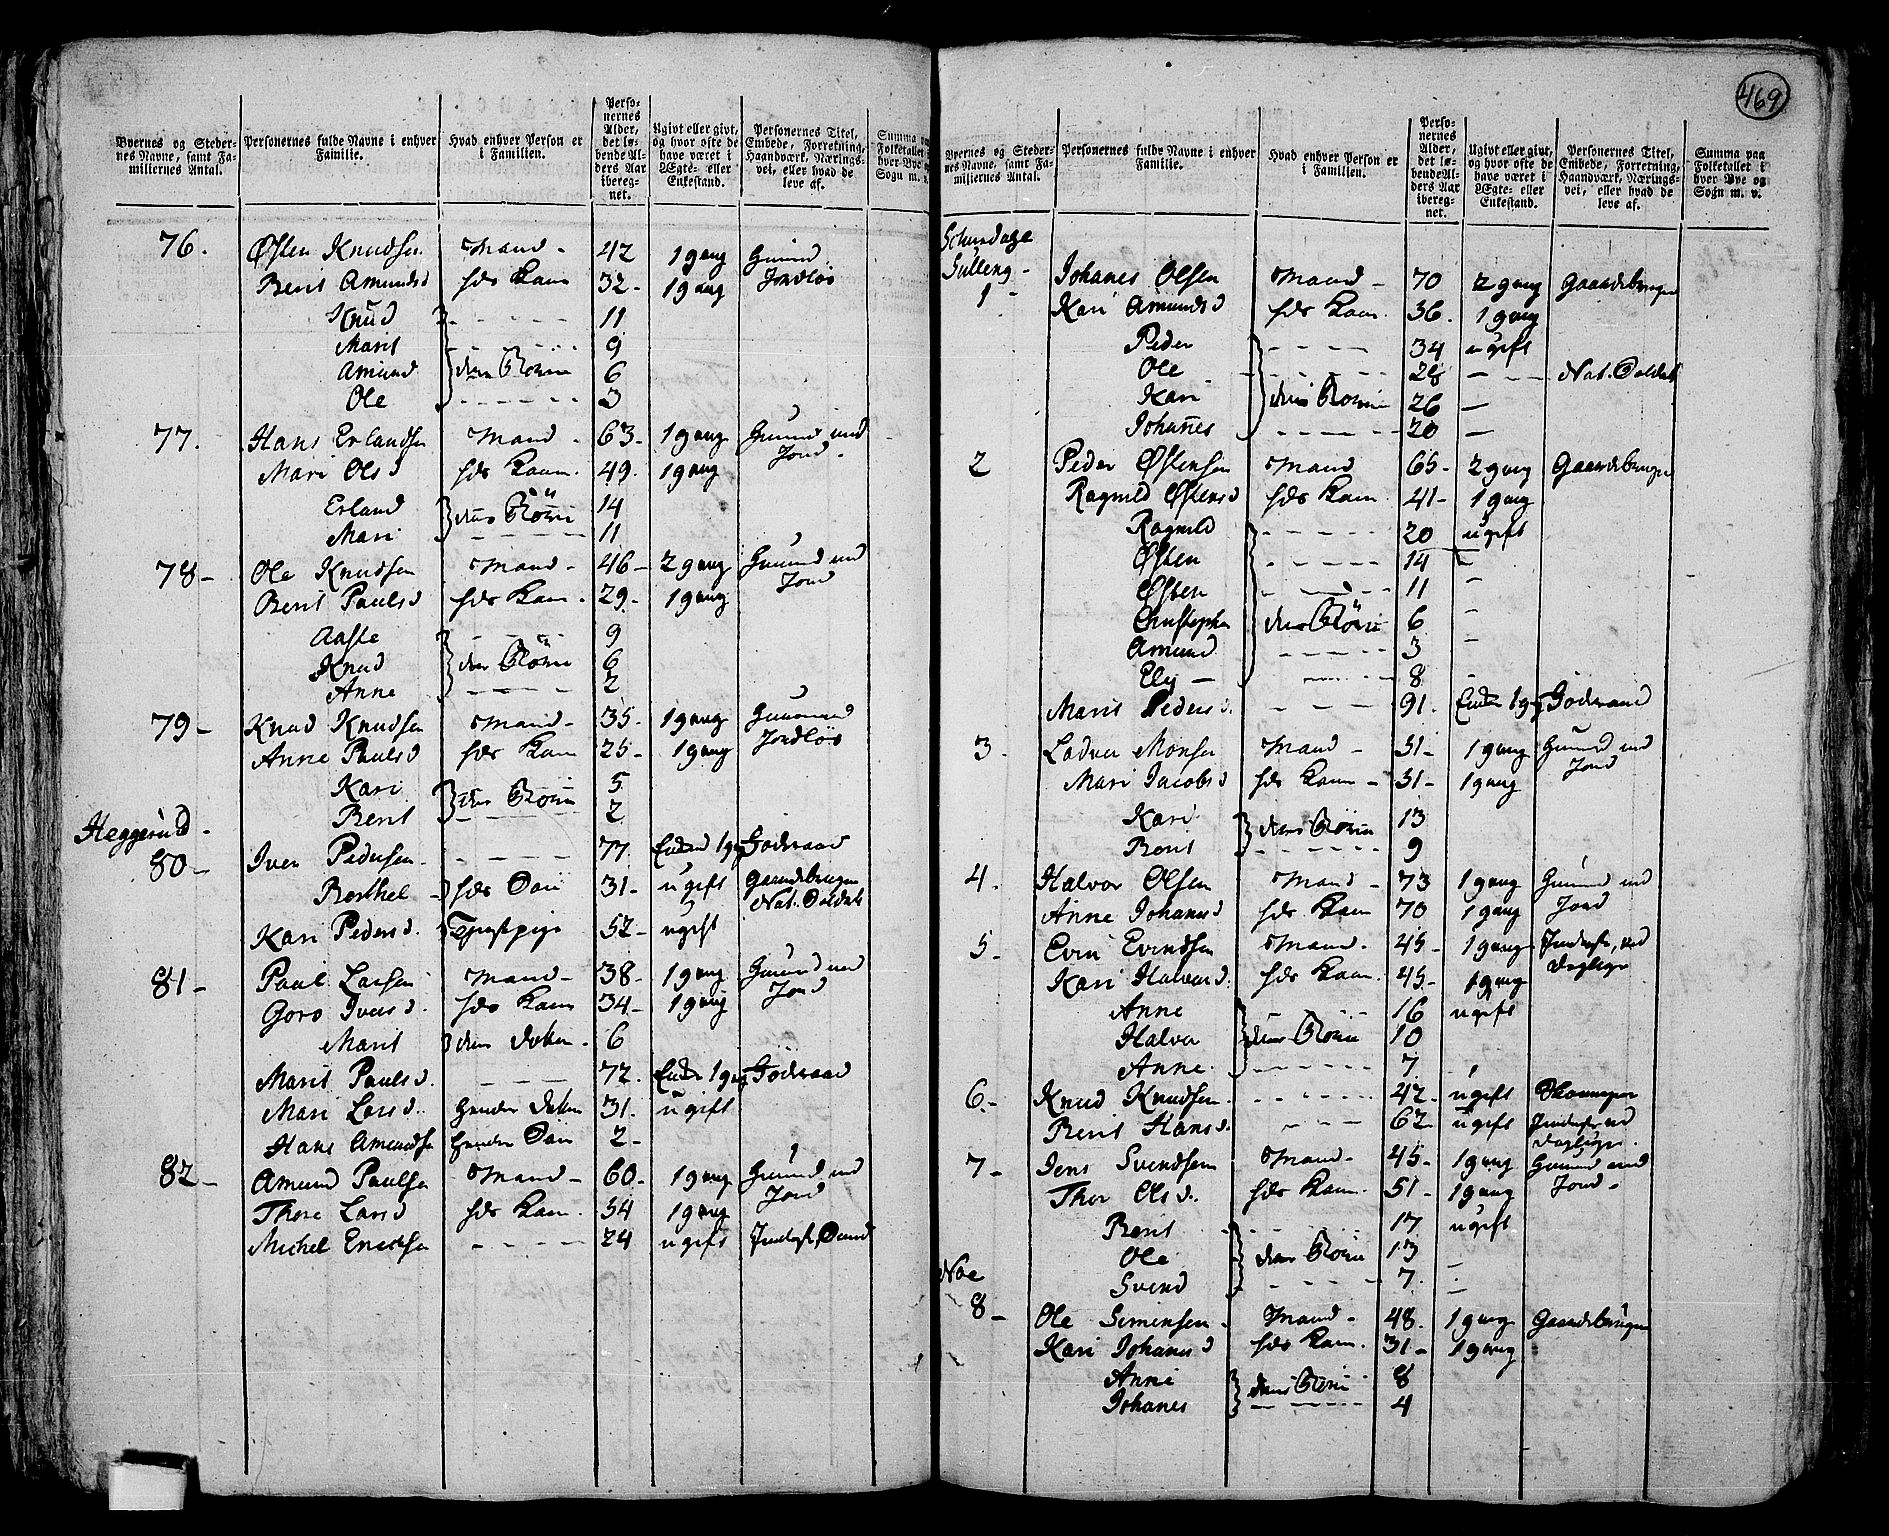 469
Byernes og Steder-
nes Navne, samt Fa-
miliernes Antal.
Personernes fulde Navne i enhver
Familie.
Hvad enhver Person er
i Familien.
Perso-
nernes
Alder,
det lø-
bende Al-
ders Aar
ibereg-
net.
Ugivt eller givt,
og hvor ofte de
have været i
Ægte- eller
Enkestand.
Personernes Titel,
Embede, Forretning,
Haandværk, Nærings-
vei, eller hvad de
leve af.
Summa pa
Folketallet
hver Bye o
Sogn m. v.
76. Østen Knudsen Mand - 42 1 gang
Berit Amunds d hds Kone 32 - 1 gang Jordløs
Knud 11
Marit 9
Amund } deres Börn 6
Ole 3
77. Hans Erlandsen Mand - 63 - 1 gang Huusmd med
Mari Ols d hds Kone. 49. 1 gang Jord -
Erland } deres Börn 14
Mari 11
78 - Ole Knudsen Mand - 46 - 2 gang Huusmd med
Berit Pauls d hds Kone. 29. 1 gang Jord
Aaste 9
Knud } deres Börn 6
Anne 2
79 - Knud Knudsen Mand - 35. 1 gang Huusmand
Anne Pauls d hds Kone 25 - 1 gang Jordløs
Kari } deres Börn 5
Berit 2
Heggerud -
80 - Iver Pedersen - 77. 1 g
Berthel - } hds Søn 31 - ugift Gaardebruger
Nat. Soldat
Kari Peders d. 52 - ugift
81 - Paul Larsen Mand - 38 - 1 gang Huusmd med
Goro Ivers d. hds Kone 34 - 1 gang Jord
Marit } deres Datter - 6
Marit Pauls d. 72. 1 g
Mari Lars d. hendes Datter 31. ugift
Hans Amundsen hendes Søn 2 -
82 - Amund Paulsen Mand - 60 - 1 gang Huusmd med
Thore Lars d hds Kone. 54 1 gang Jord
Michel Ericksen 24 ugift
Byernes og Steder-
nes Navne, samt Fa-
miliernes Antal.
Personernes fulde Navne i enhver
Familie.
Hvad enhver Person er
i Familien.
Perso-
nernes
Alder,
det lø-
bende Al-
ders Aar
ibereg-
net.
Ugivt eller givt,
og hvor ofte de
have været i
Ægte- eller
Enkestand.
Personernes Titel,
Embede, Forretning,
Haandværk, Nærings-
vei, eller hvad de
leve af.
Summa paa
Folketallet i
hver Bye og
Sogn m. v.
1 - Johanes Olsen Mand - 70 2 gang Gaardebruger
Kari Amunds d hds Kone. 36. 1 gang
Peder 34 ugift
Ole 28 - Nat. Soldat
Kari } deres Börn 26 -
Johannes 20 -
2 Peder Østensen Mand 65 - 2 gang Gaardebruger
Ragnild Østens d hds Kone. 41 - 1 gang
Ragnild 20 ugift
Østen 14 -
Østen 11 -
Christopher } deres Börn 6 -
Amund 3 -
Ely - 8 -
Marit Peders d. 91. 1 g
3 - Lodver Monsen Mand - 31 - 1 gang Huusmd med
Mari Jacobs d hds Kone - 31 - 1 gang Jord
Kari } deres Börn 13
Berit 9
4 - Halvor Olsen Mand - 73 1 gang Huusmd med
Anne Johanes d hds Kone 70 1 gang Jord
5 - Evin Evindsen Mand. 45 - 1 gang
Kari Halvors d. hds Kone. 45 - 1 gang
Anne 16 ugift
Halvor } deres Börn 10
Anne. 7.
6. - Knud Knudsen 42. ugift
Berit Hans d. 62 - ugift
7 - Jens Svendsen Mand - 45 - 1 gang Huusmd med
Thor Ols d. hds Kone. 51 - 1 gang Jord -
Berit 17 ugift
Ole } deres Börn 13 -
Svend 7. -
Noe
8 - Ole Simensen - Mand - 48. 1 gang Gaardebruger
Kari Johanes d hds Kone. 31 - 1 gang
Anne } deres Börn 8
Johanes 4